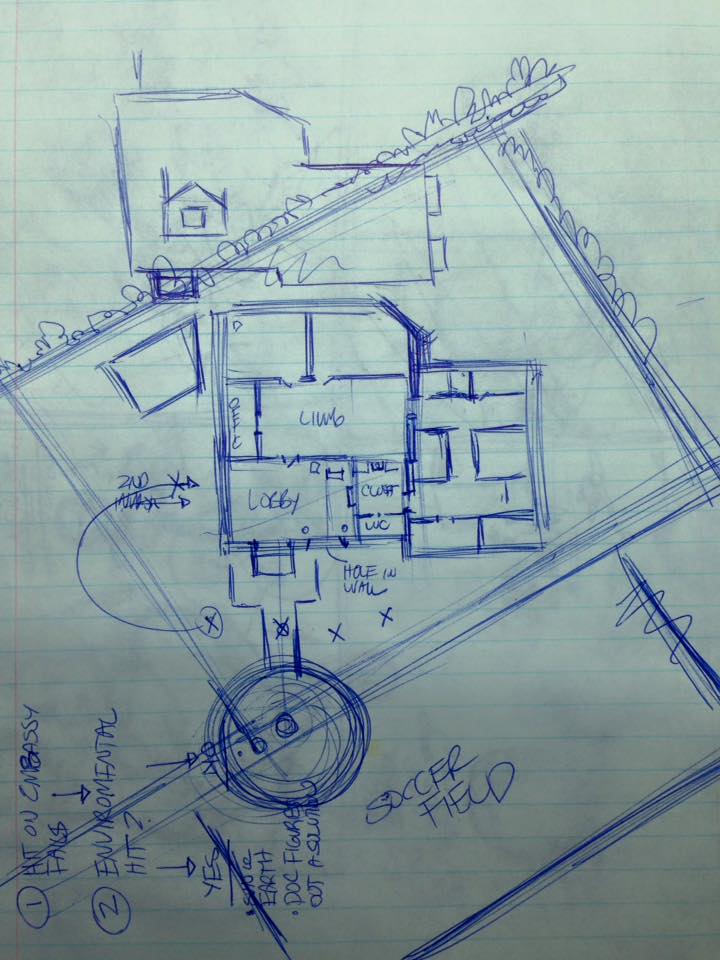 LIVING
OFFICE
LOBBY
CLOSET
WC
2ND
HOLE IN
WALL
SOCCER
FIELD
① HIT ON EMBASSY
FAILS
② ENVIROMENTAL
HIT?
NO
YES
EARTH
• DOC FIGURES
OUT A SOLUTION